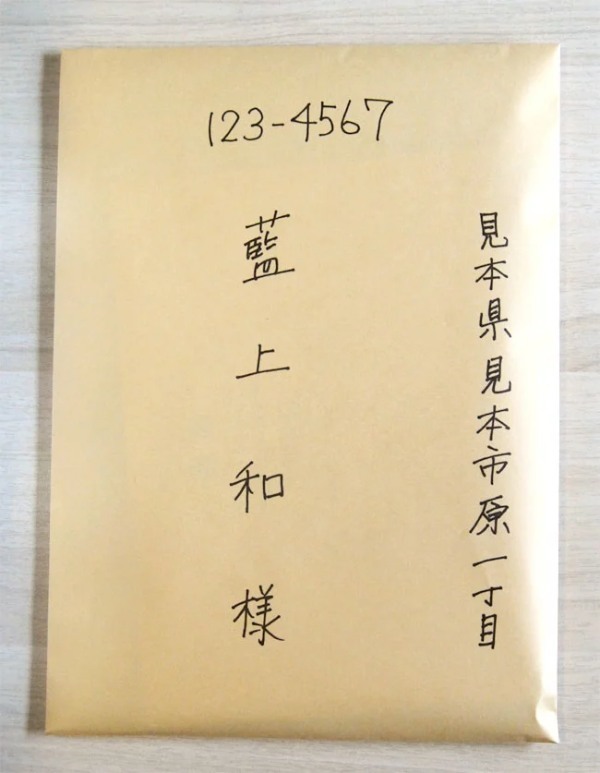 123-4567
見本県見本市原一丁目
藍上和様